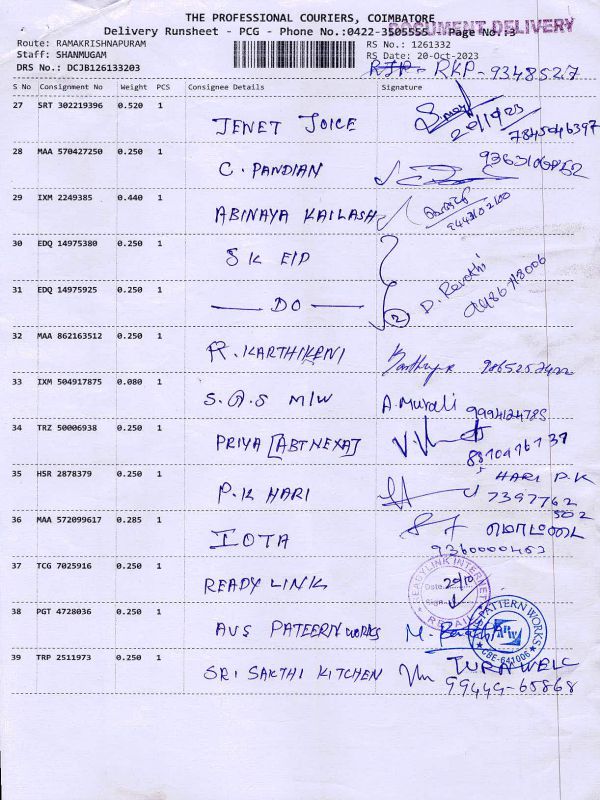 THE PROFESSIONAL COURIERS, COIMBATORE
Delivery Runsheet - PCG - Phone No.:0422-3505555 Page No :3
DOCUMENT DELIVERY
Route: RAMAKRISHNAPURAM RS No.: 1261332
Staff: SHANMUGAM RS Date: 20-Oct-2023
DRS No.: DCJB126133203 RKP-9348527
S No Consignment No Weight PCS Consignee Details Signature
27 SRT 302219396 0.520 1 JENET JOICE 7845046397
28 MAA 570427250 0.250 1 C. PANDIAN
29 IXM 2249385 0.440 1 ABINAYA KAILASH
30 EDQ 14975380 0.250 1 SK EIP
31 EDQ 14975925 0.250 1 DO 2 D. Revathi
32 MAA 862163512 0.250 1 R. KARTHIKENI
33 IXM 504917875 0.080 1 S.G.S M/W A. Murali
34 TRZ 50006938 0.250 1 PRIYA [ABT NEXA]
35 HSR 2878379 0.250 1 P.K HARI HARI P.K
7397762
502
36 MAA 572099617 0.285 1 IOTA
37 TCG 7025916 0.250 1 READY LINK READYLINK INTERNET
Date 20/10
Sign
38 PGT 4728036 0.250 1 AVS PATEERN WORKS PATTERN WORKS
APW
CBE-641006
39 TRP 2511973 0.250 1 SRI SAKTHI KITCHEN TURAWELL
99449-65868